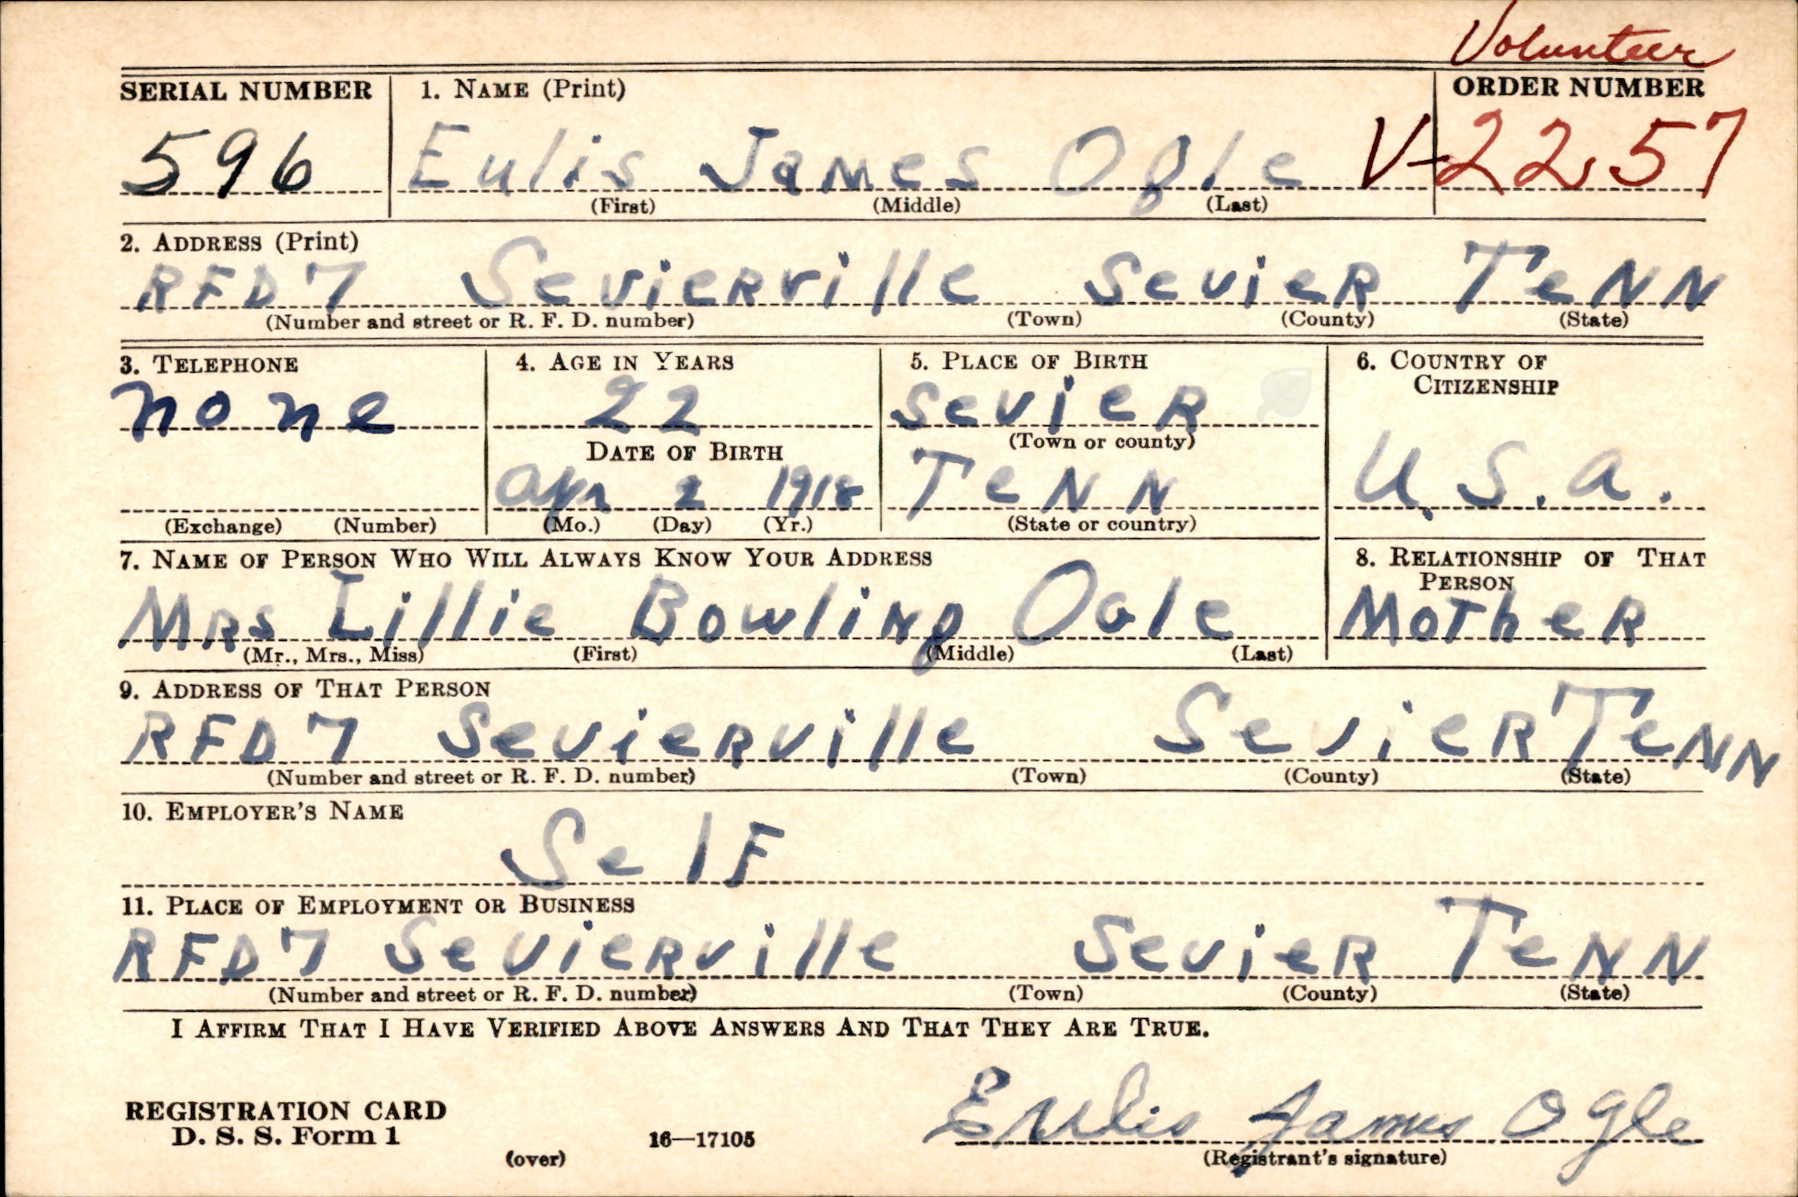 Volunteer
SERIAL NUMBER 1. NAME (Print) ORDER NUMBER
596 Eulis James Ogle V-2257
(First) (Middle) (Last)
2. ADDRESS (Print)
RFD 7 Sevierville Sevier Tenn
(Number and street or R. F. D. number) (Town) (County) (State)
3. TELEPHONE 4. AGE IN YEARS 5. PLACE OF BIRTH 6. COUNTRY OF
CITIZENSHIP
none 22 Sevier
(Town or county)
DATE OF BIRTH
Apr 2 1918 Tenn U.S.A.
(Exchange) (Number) (Mo.) (Day) (Yr.) (State or country)
7. NAME OF PERSON WHO WILL ALWAYS KNOW YOUR ADDRESS 8. RELATIONSHIP OF THAT
PERSON
Mrs Lillie Bowling Ogle Mother
(Mr., Mrs., Miss) (First) (Middle) (Last)
9. ADDRESS OF THAT PERSON
RFD 7 Sevierville Sevier Tenn
(Number and street or R. F. D. number) (Town) (County) (State)
10. EMPLOYER'S NAME
Self
11. PLACE OF EMPLOYMENT OR BUSINESS
RFD 7 Sevierville Sevier Tenn
(Number and street or R. F. D. number) (Town) (County) (State)
I AFFIRM THAT I HAVE VERIFIED ABOVE ANSWERS AND THAT THEY ARE TRUE.
REGISTRATION CARD
D. S. S. Form 1 Eulis James Ogle
(over) 16—17105 (Registrant's signature)